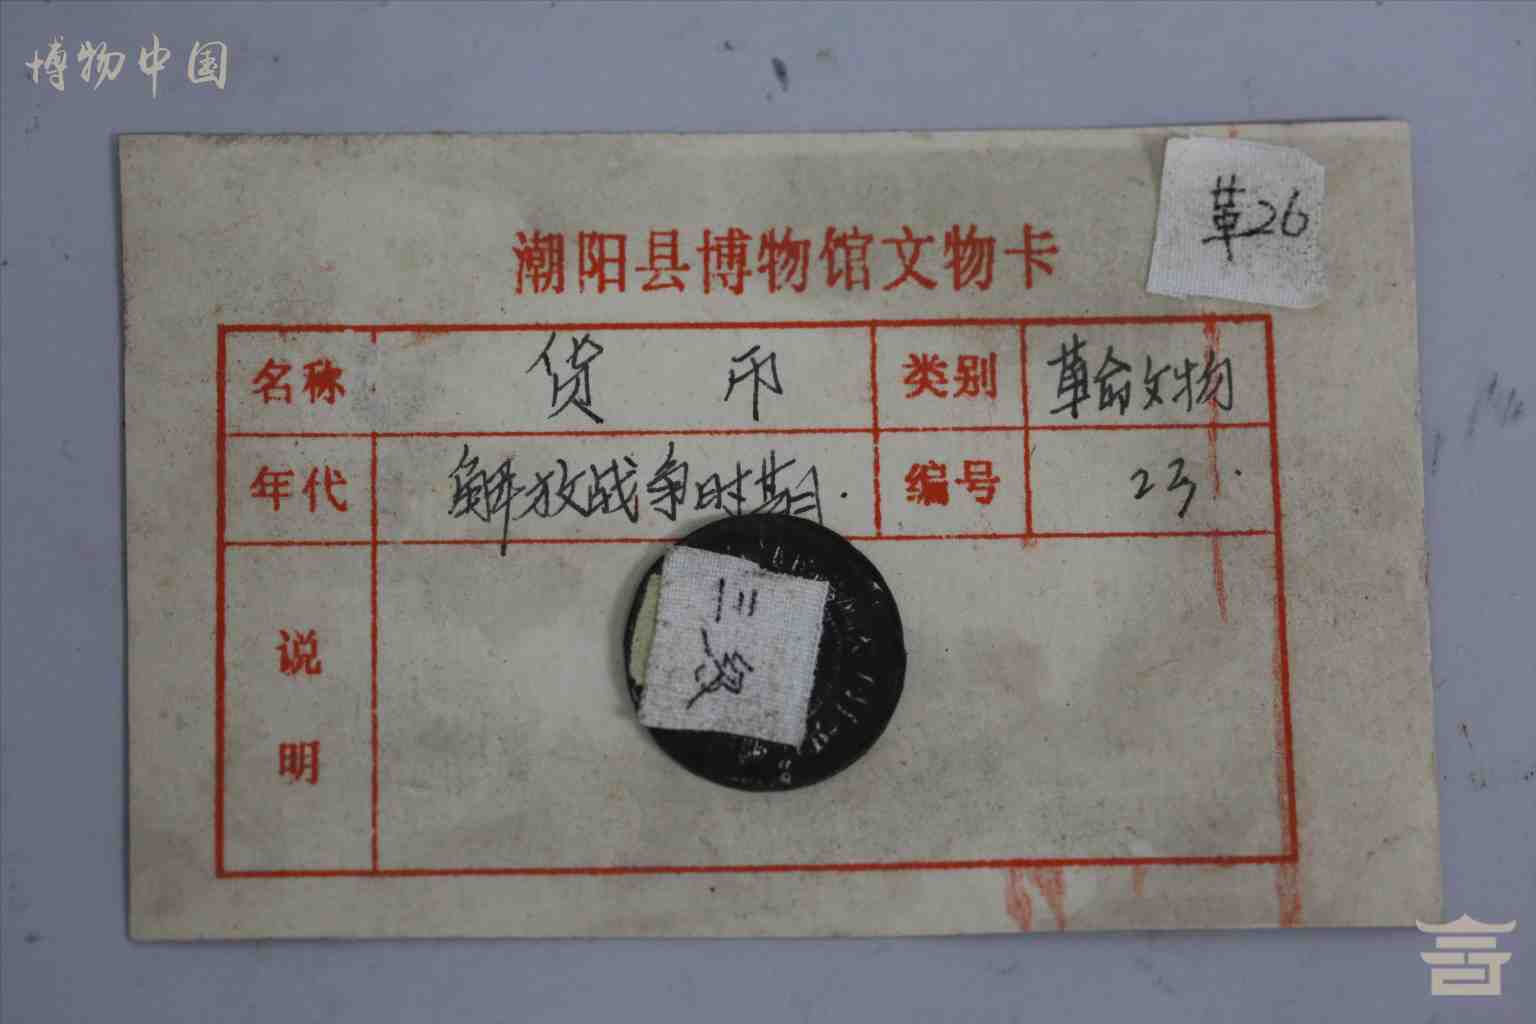 博物中国
革26
潮阳县博物馆文物卡
名称 货币 类别 革命文物
年代 解放战争时期. 编号 23.
说明
三级